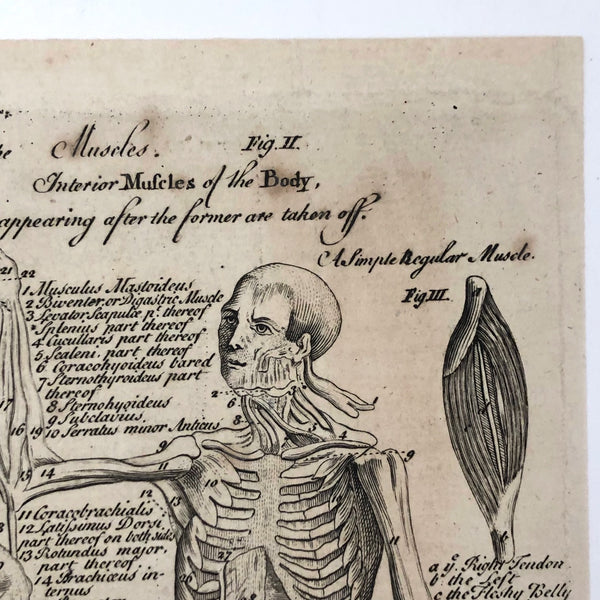 he Muscles. Fig. II.
Interior Muſcles of the Body,
appearing after the former are taken off.
A Simple Regular Muscle.
Fig. III.
21 22
1 Musculus Mastoideus
2 Biventer, or Digastric Muscle
3 Levator Scapulæ pt. thereof
* Splenius part thereof
4 Cucularis part thereof
5 Scaleni. part thereof
6 Coracohyoideus bared
7 Sternothyroideus part
thereof
8 Sternohyoideus
9 Subclavius.
10 Serratus minor Anticus
17
16 19
2
6
1
8
5
4
9
9
11
14
19
10
12
13
11
27
26
11 Coracobrachialis
12 Latissimus Dorsi,
part thereof on both sides
13 Rotundus major,
part thereof.
14 Brachiæus in-
ternus
a ye. Right Tendon
b the Left
c the Fleshy Belly